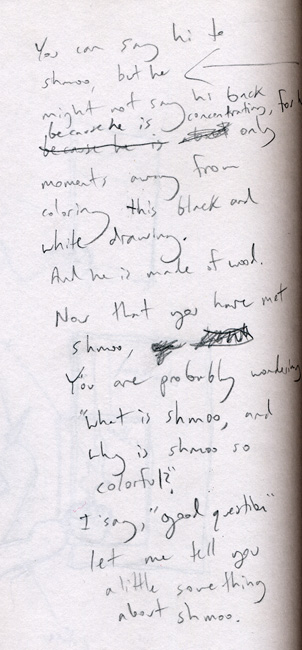 You can say hi to
shmoo, but he
might not say hi back
because he is concentrating, for he
because he is only
moments away from
coloring this black and
white drawing.
And he is made of wood.
Now that you have met
shmoo,
You are probably wondering
"What is shmoo, and
why is shmoo so
colorful?"
I say, "good question"
let me tell you
a little something
about shmoo.